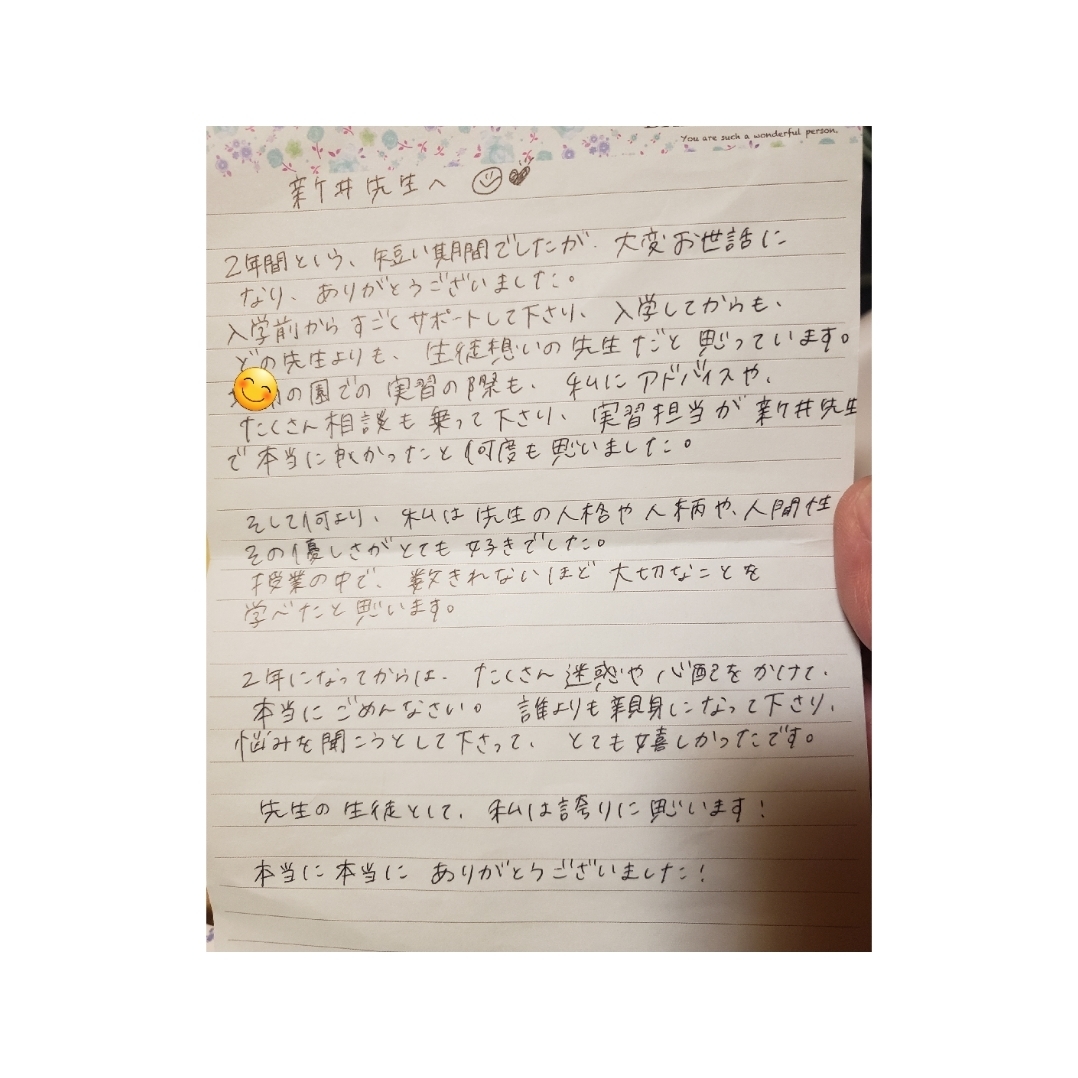 You are such a wonderful person.
新井先生へ
2年間という、短い期間でしたが、大変お世話に
なり、ありがとうございました。
入学前からすごくサポートして下さり、入学してからも、
どの先生よりも、生徒想いの先生だと思っています。
の園での実習の際も、私にアドバイスや、
たくさん相談も乗って下さり、実習担当が新井先生
で本当に良かったと何度も思いました。
そして何より、私は先生の人格や人柄や、人間性
その優しさがとても好きでした。
授業の中で、数きれないほど大切なことを
学べたと思います。
2年になってからは、たくさん迷惑や心配をかけて、
本当にごめんなさい。誰よりも親身になって下さり、
悩みを聞こうとして下さって、とても嬉しかったです。
先生の生徒として、私は誇りに思います!
本当に本当にありがとうございました!